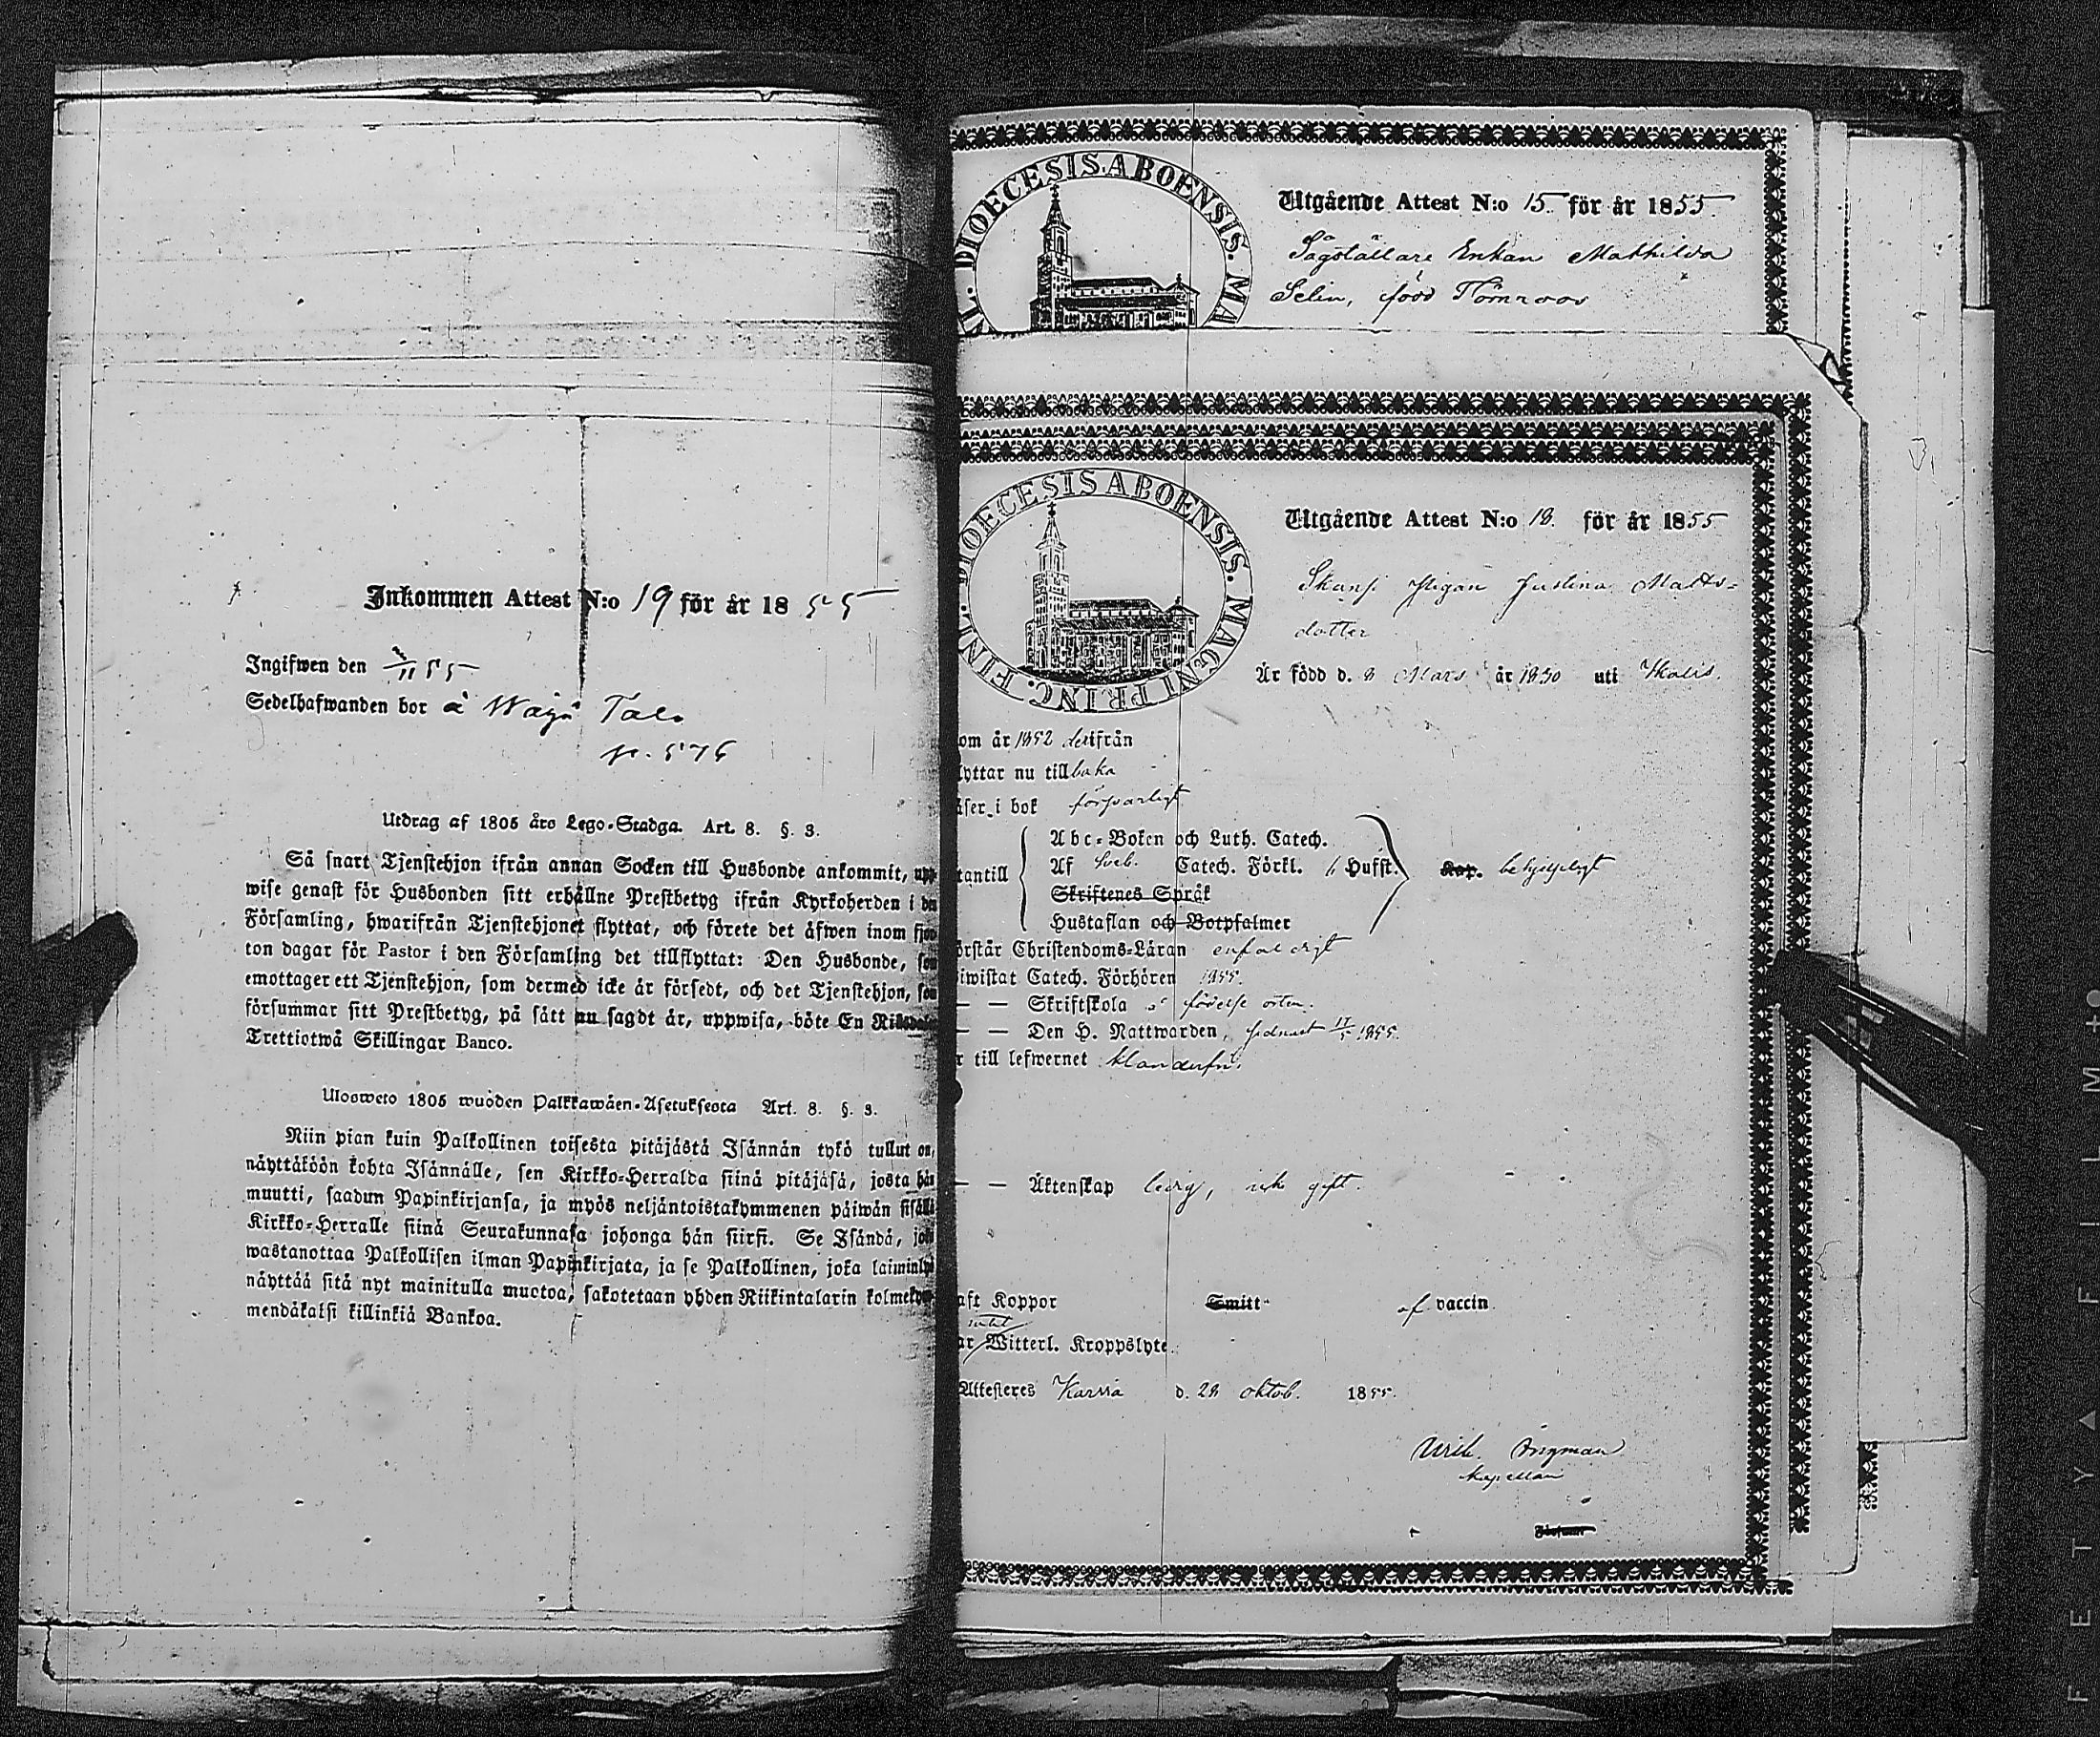 Inkommen Attest N:o 19 för år 1855
Ingifwen den /11 55
Sedelhafwanden bor å Wäyå Tals
p. 576
Utdrag af 1805 års Lego-Stadga. Art. 8. §. 3.
Så snart Tjenstehjon ifrån annan Socken till Husbonde ankommit, upp-
wise genast för Husbonden sitt erhållne Prestbetyg ifrån Kyrkoherden i den
Församling, hwarifrån Tjenstehjonet flyttat, och förete det äfwen inom fjor-
ton dagar för Pastor i den Församling det tillflyttat: Den Husbonde, som
emottager ett Tjenstehjon, som dermed icke är försedt, och det Tjenstehjon, som
försummar sitt Prestbetyg, på sätt nu sagdt är, uppwisa, böte En Riksdaler
Trettiotwå Skillingar Banco.
Ulosweto 1805 wuoden Palkkawäen-Asetuksesta Art. 8. §. 3.
Niin pian kuin Palkollinen toisesta pitäjästä Isännän tykö tullut on,
näyttäköön kohta Isännälle, sen Kirkko-Herralda siinä pitäjäsä, josta hän
muutti, saadun Papinkirjansa, ja myös neljäntoistakymmenen päiwän sisällä
Kirkko-Herralle siinä Seurakunnasa johonga hän siirsi. Se Isändä, joka
wastanottaa Palkollisen ilman Papinkirjata, ja se Palkollinen, joka laiminlyö
näyttää sitä nyt mainitulla muotoa, sakotetaan yhden Riikintalarin kolmekym-
mendäkaksi killinkiä Bankoa.
DIOECESIS ABOENSIS. MA
Utgående Attest N:o 15. för år 1855.
Sågställare Enkan Mathilda
Selin, född Törnroos
FINL. DIOECESIS ABOENSIS. MAGNI PRINC.
Utgående Attest N:o 18. för år 1855
Skans Pigan Justina Matts-
dotter
Är född d. 8 Mars år 1830 uti Skalis.
om år 1852 derifrån
lyttar nu tillbaka
äser i bok försvarligt
Abc-Boken och Luth. Catech.
tantill Af Sveb. Catech. Förkl. Hufst. Kap. behjelpligt
Skriftenes Språk
Hustaflan och Botpsalmer
örstår Christendoms-Läran enfaldigt
iwistat Catech. Förhören 1855.
— — Skriftskola å födelse orten.
— — Den H. Nattwarden, sednast 17/5 1855.
r till lefwernet klanderfri.
— — Äktenskap ledig, icke gift.
aft Koppor Smitt af vaccin
intet
ar Witterl. Kroppslyte.
Attesteres Karis d. 28 oktob. 1855.
Wilh. Ingman
Kapellan
FETYAFILM